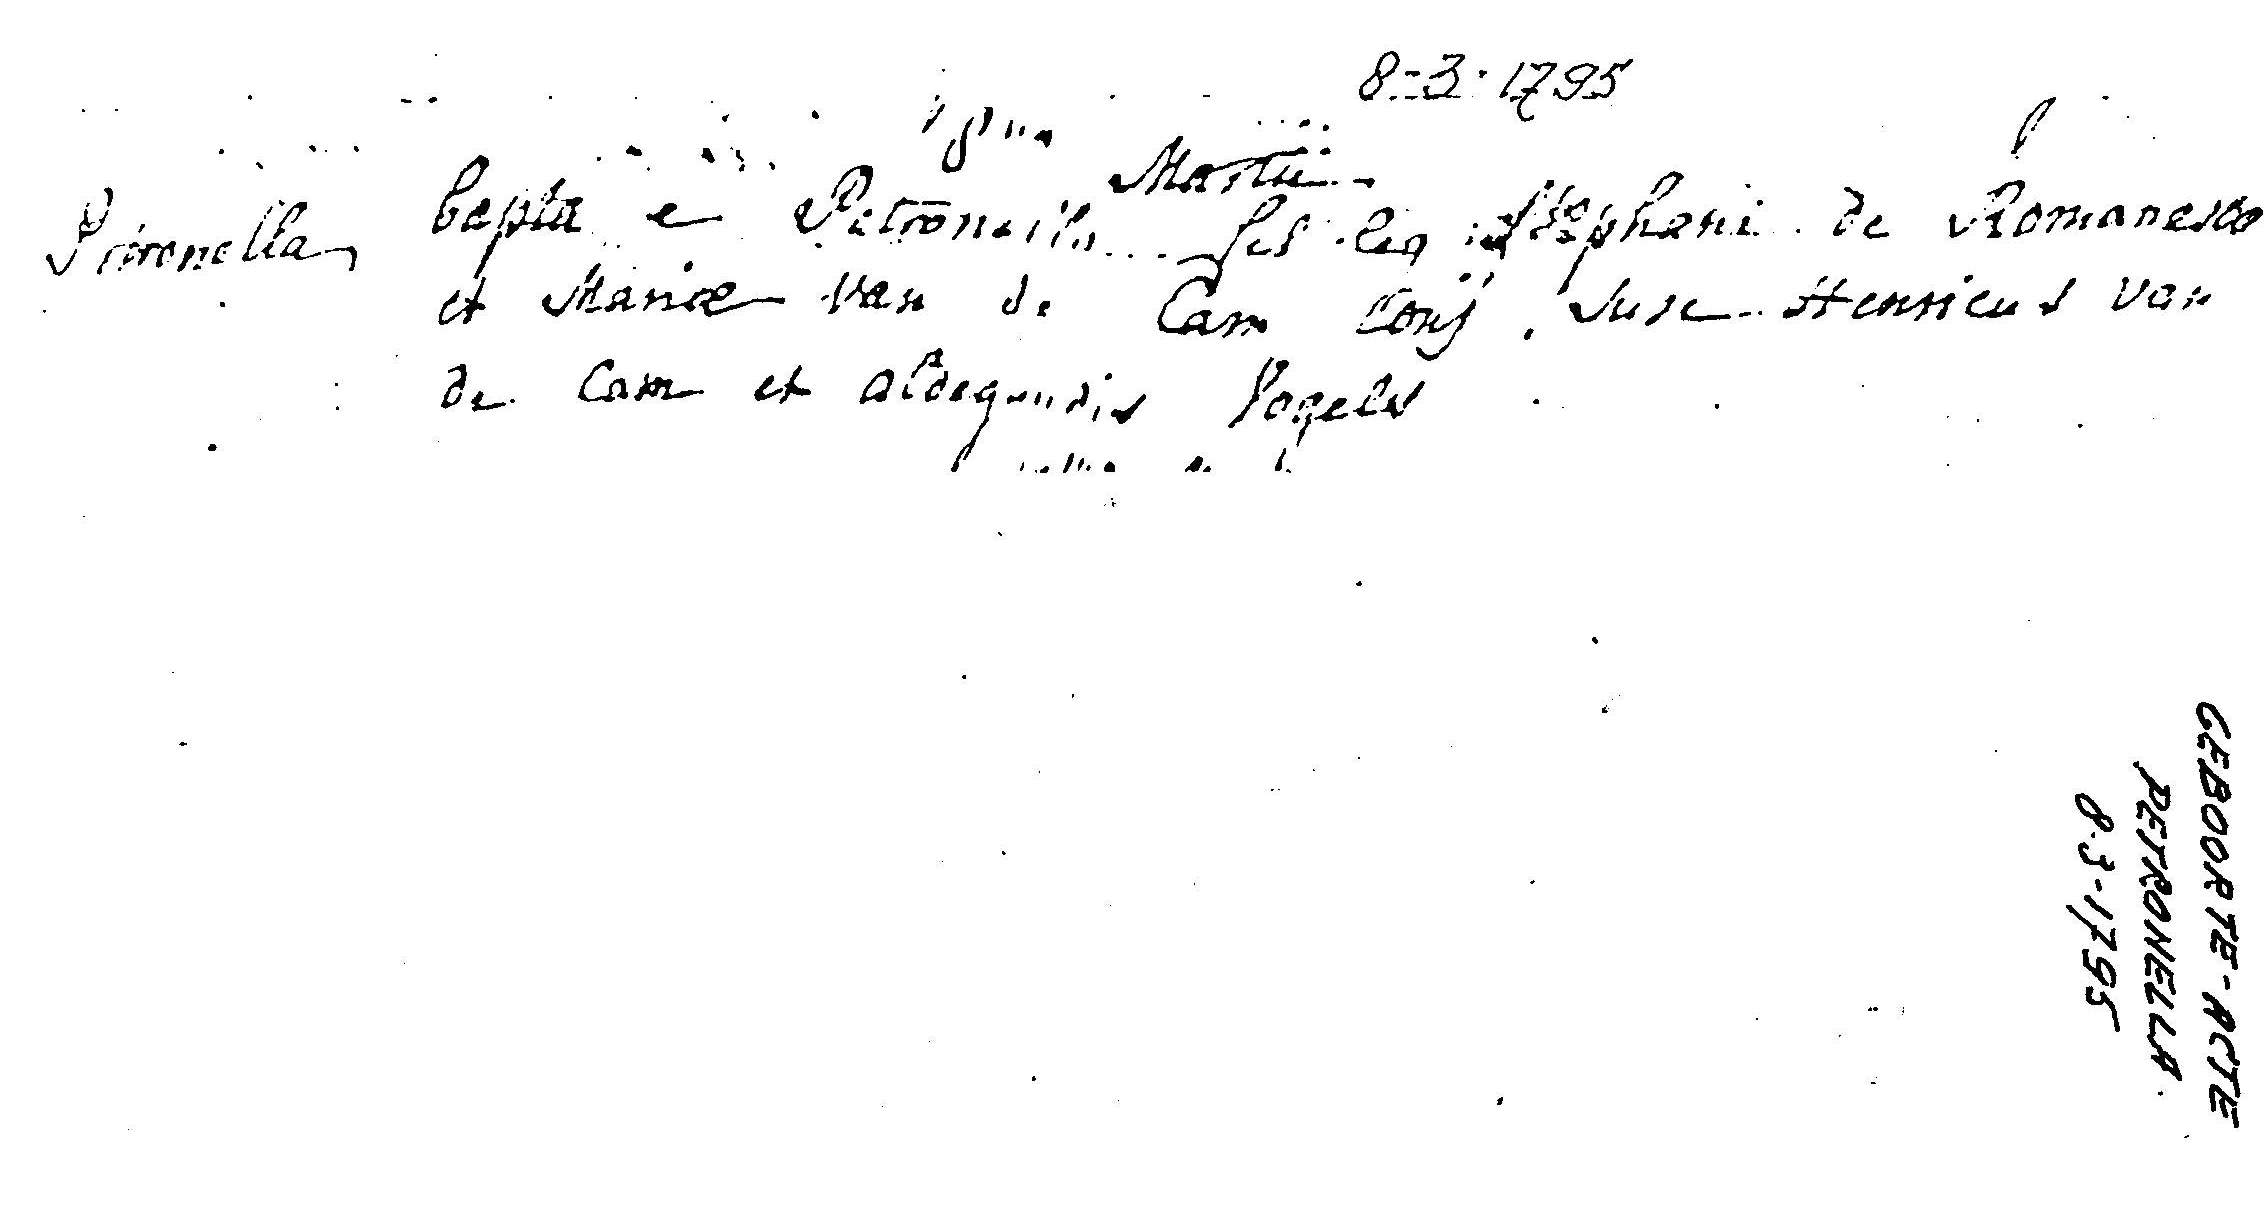 8-3-1795
8va Martii
Petronella bapta e Petronella fil leg Stephani de Romanesco
et Mariæ Van de Cam Conj. Susc Henricus Van
de Cam et Aldegundis Vogels
GEBOORTE-ACTE
PETRONELLA
8-3-1795